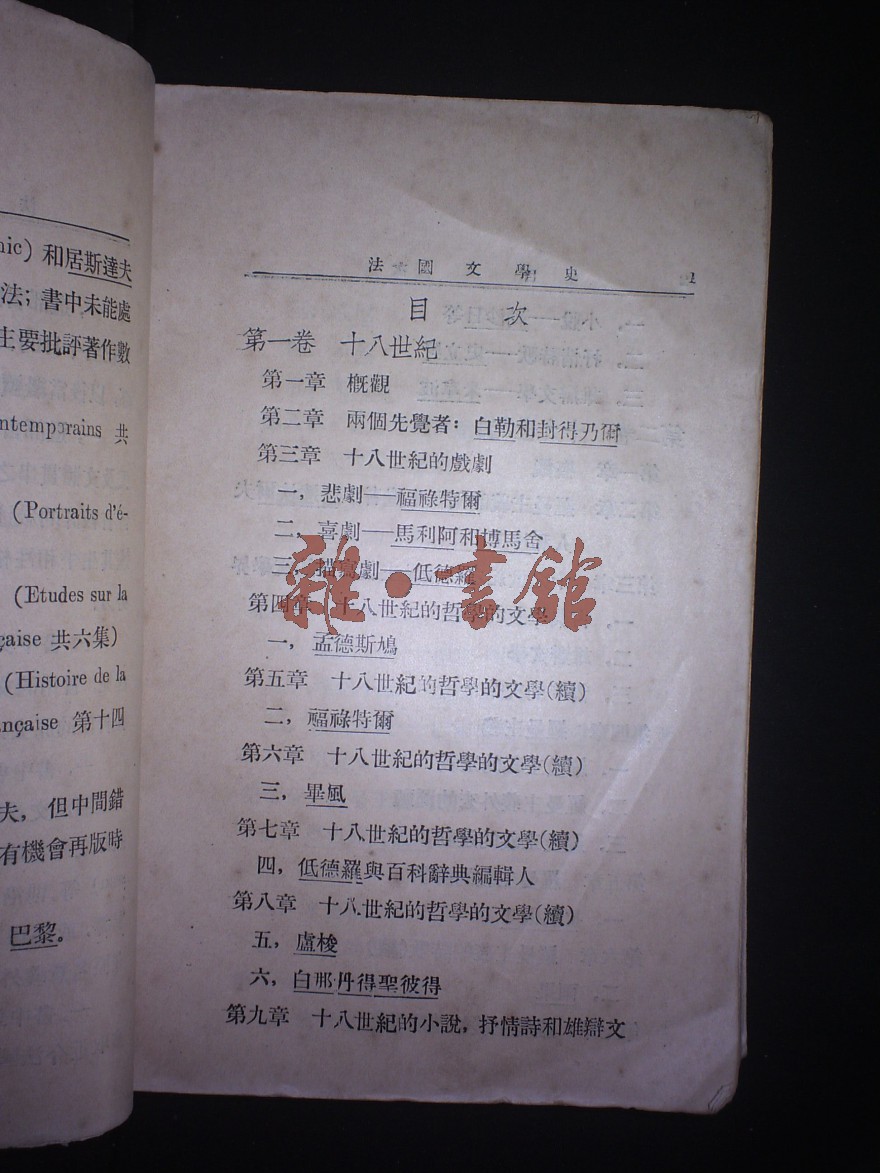 nic) 和居斯達夫
法；書中未能處
主要批評著作數
ntemporains 共
(Portraits d'é-
(Etudes sur la
çaise 共六集)
(Histoire de la
nçaise 第十四
夫，但中間錯
有機會再版時
巴黎。
法國文學史
目次
第一卷 十八世紀
第一章 槪觀
第二章 兩個先覺者：白勒和封得乃爾
第三章 十八世紀的戲劇
一，悲劇——福祿特爾
二，喜劇——馬利阿和博馬舍
三，描寫劇——低德羅
第四章 十八世紀的哲學的文學
一，孟德斯鳩
第五章 十八世紀的哲學的文學(續)
二，福祿特爾
第六章 十八世紀的哲學的文學(續)
三，畢風
第七章 十八世紀的哲學的文學(續)
四，低德羅與百科辭典編輯人
第八章 十八世紀的哲學的文學(續)
五，盧梭
六，白那丹得聖彼得
第九章 十八世紀的小說，抒情詩和雄辯文
雜·書館